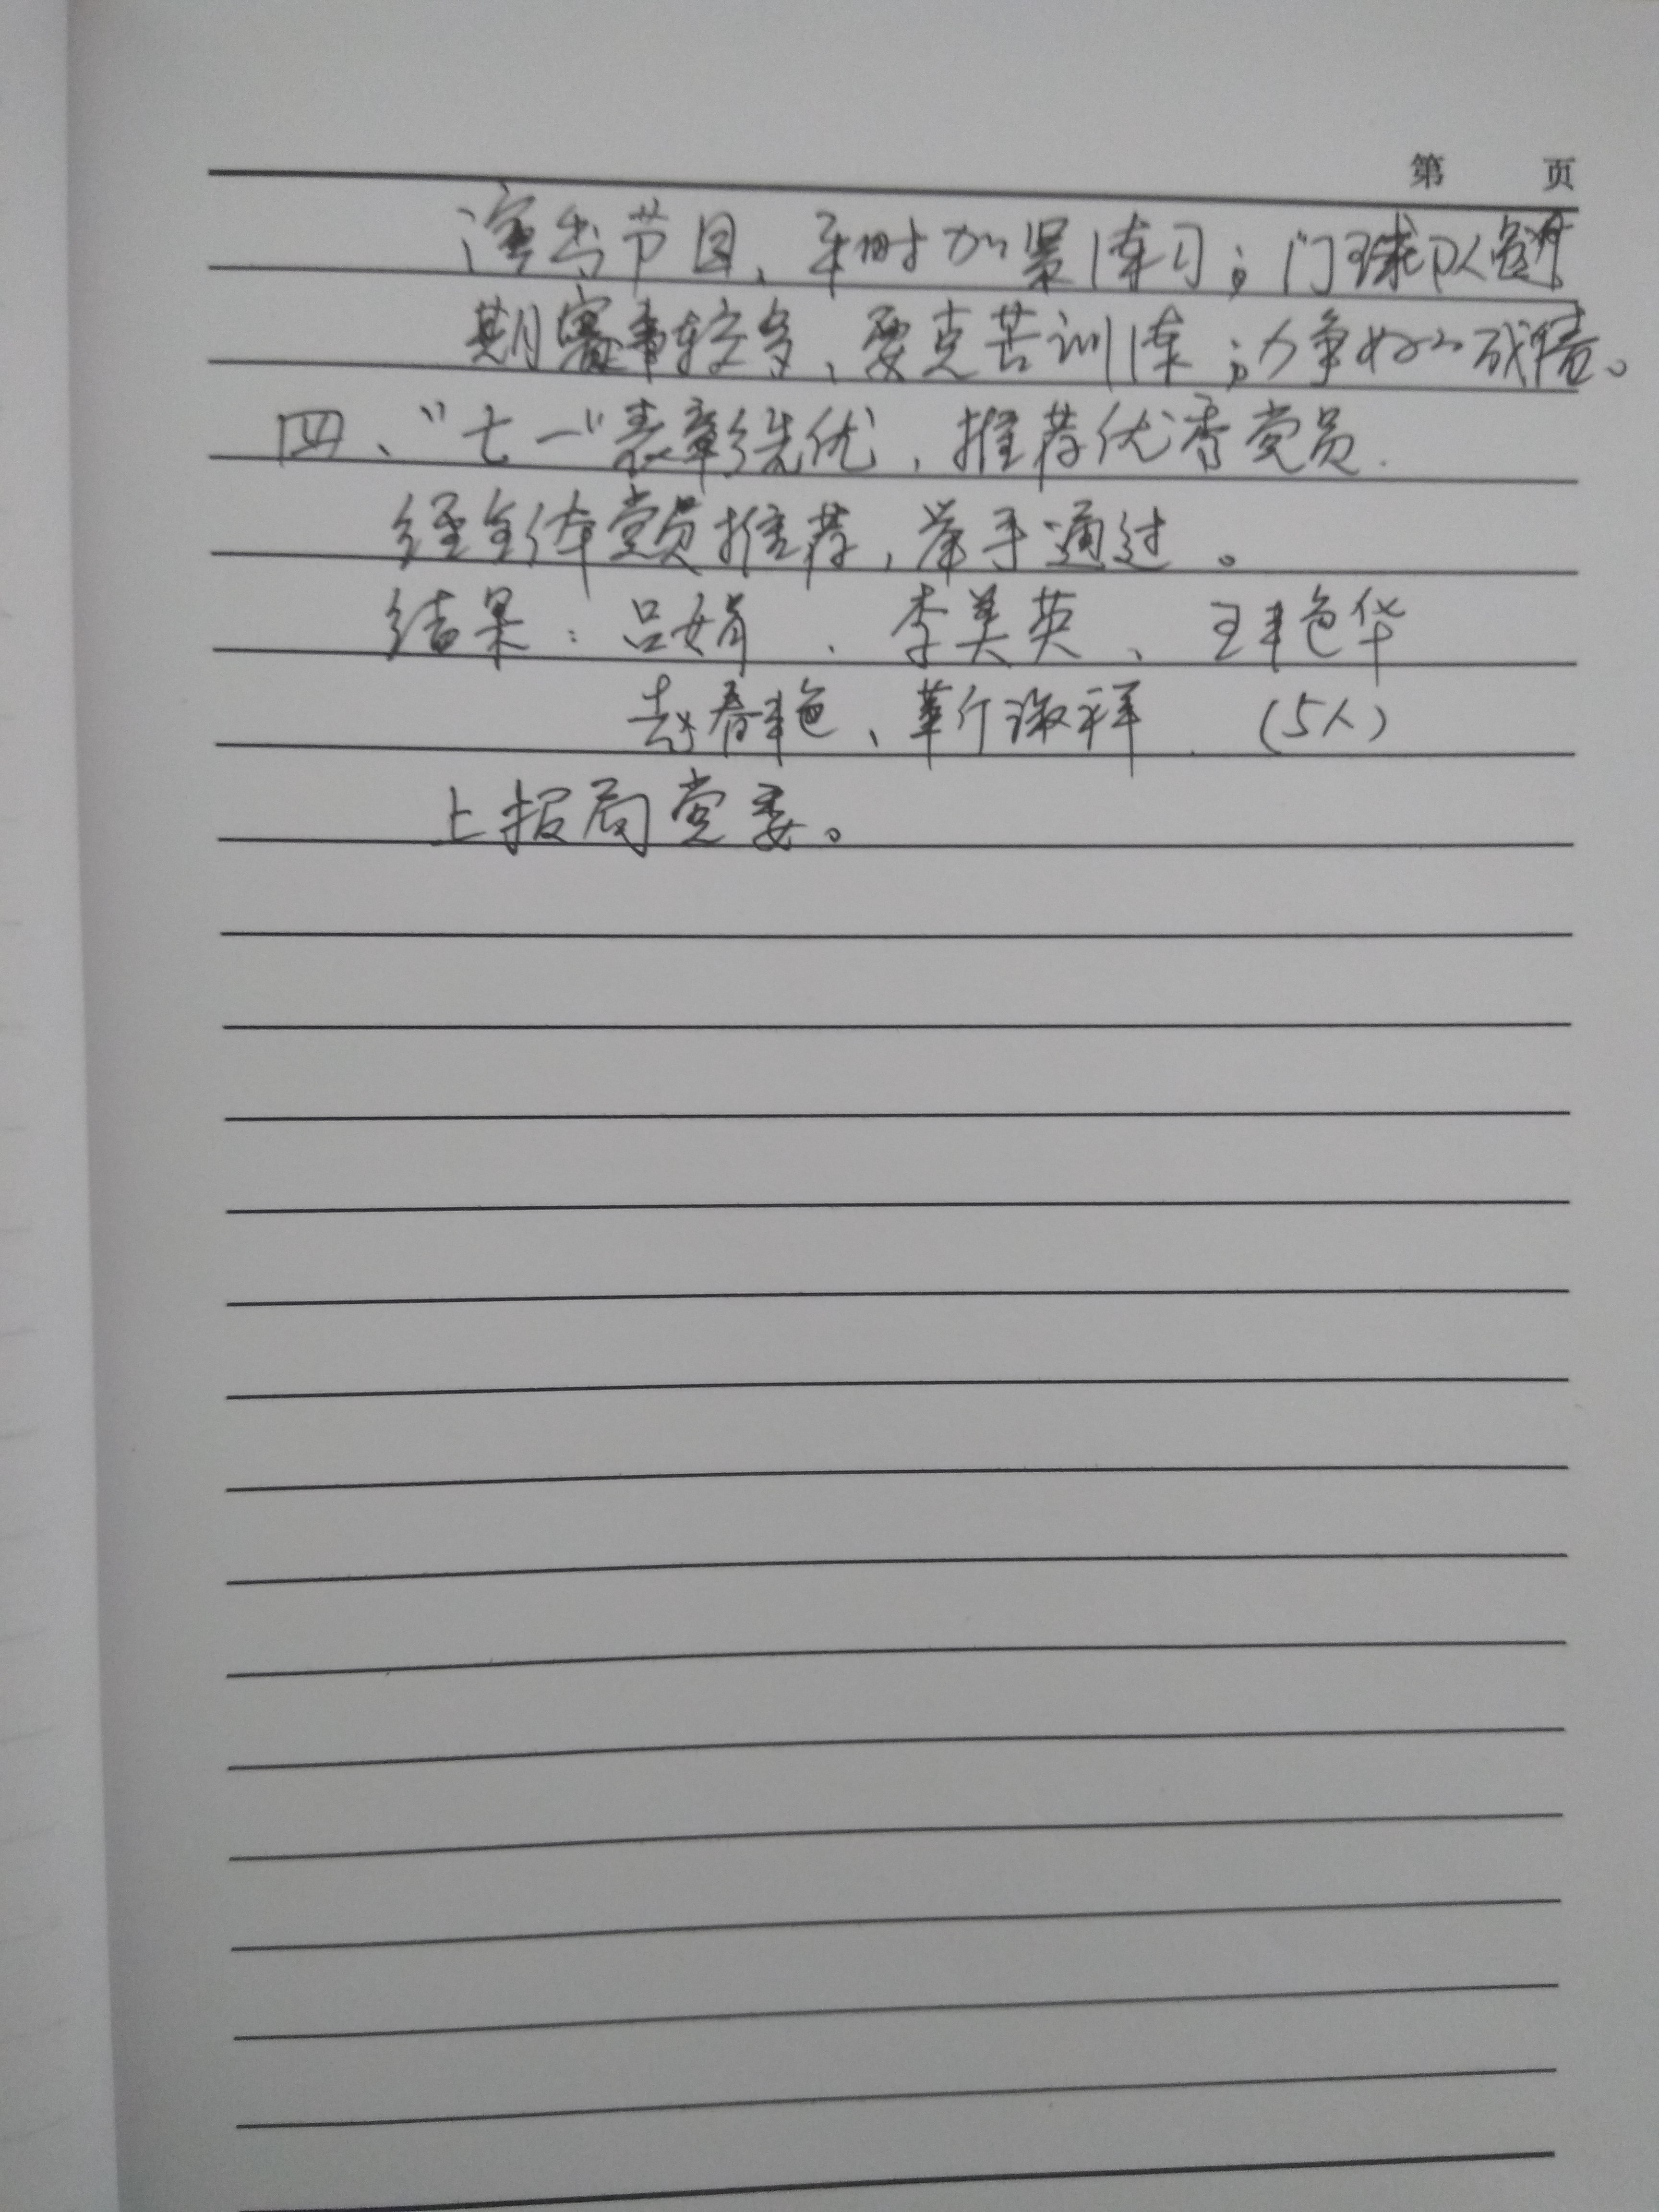 第 页
演出节目、平时加紧练习;门球队
期赛事较多,要克苦训练;力争好的成绩。
四、"七一"表彰先优,推荐优秀党员.
经全体党员推荐,举手通过。
结果:吕娟、李美英、王艳华
赵春艳、靳淑祥.(5人)
上报局党委。